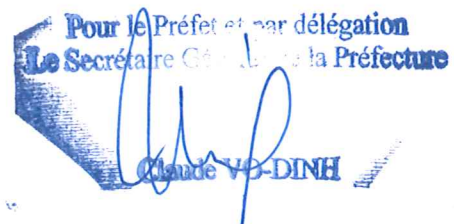 Pour le Préfet et par délégation
Le Secrétaire Général de la Préfecture
Claude VO-DINH